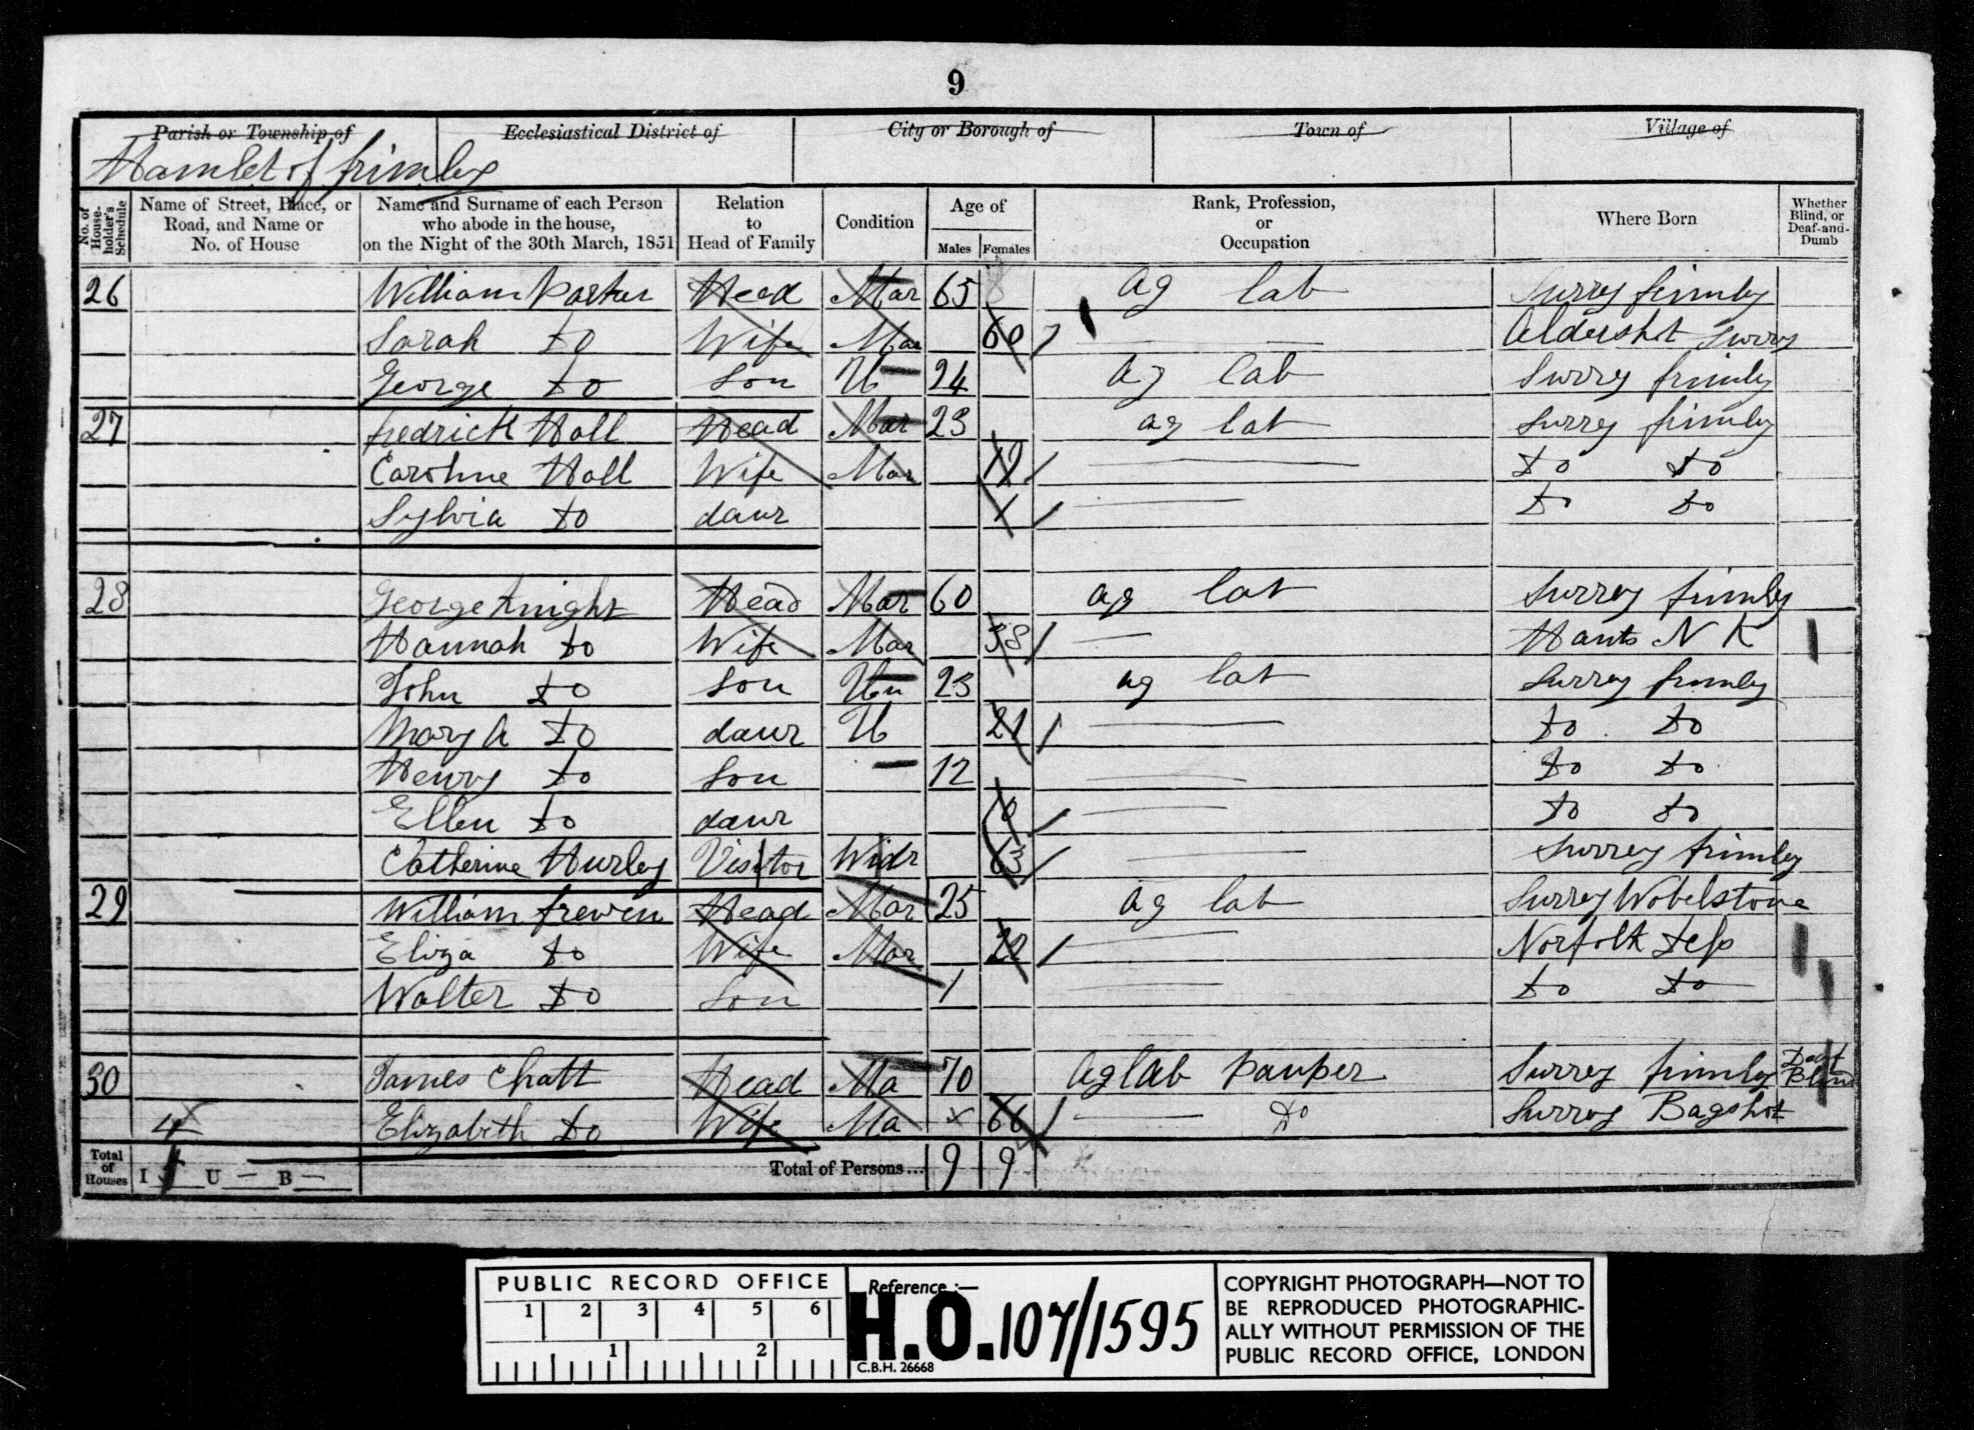 9
Parish or Township of Ecclesiastical District of City or Borough of Town of Village of
Hamlet of frimley
No. of House-holder's Schedule
Name of Street, Place, or Road, and Name or No. of House
Name and Surname of each Person who abode in the house, on the Night of the 30th March, 1851
Relation to Head of Family
Condition
Age of
Males Females
Rank, Profession, or Occupation
Where Born
Whether Blind, or Deaf-and-Dumb
26 William Parker Head Mar 65 ag lab Surrey frimley
Sarah do Wife Mar 60 Aldershot Surrey
George do Son U 24 ag lab Surrey frimley
27 fredrick Hall Head Mar 23 ag lab Surrey frimley
Caroline Hall Wife Mar 19 do do
Sylvia do daur 1 do do
28 George Knight Head Mar 60 ag lab Surrey frimley
Hannah do Wife Mar 58 Hants N K
John do Son Un 23 ag lab Surrey frimley
Mary A do daur U 21 do do
Henry do Son 12 do do
Ellen do daur do do
Catherine Hurley Visitor Widr 63 Surrey frimley
29 William frewen Head Mar 25 ag lab Surrey Wobelstone
Eliza do Wife Mar 22 Norfolk
Walter do Son 1 do do
30 James Chatt Head Ma 70 ag lab pauper Surrey frimley Deaf Blind
4 Elizabeth do Wife Ma × 66 do Surrey Bagshot
Total of Houses I U — B — Total of Persons... 9 9
PUBLIC RECORD OFFICE
1 2 3 4 5 6
1 2
Reference :—
H.O. 107/1595
C.B.H. 26668
COPYRIGHT PHOTOGRAPH—NOT TO
BE REPRODUCED PHOTOGRAPHIC-
ALLY WITHOUT PERMISSION OF THE
PUBLIC RECORD OFFICE, LONDON